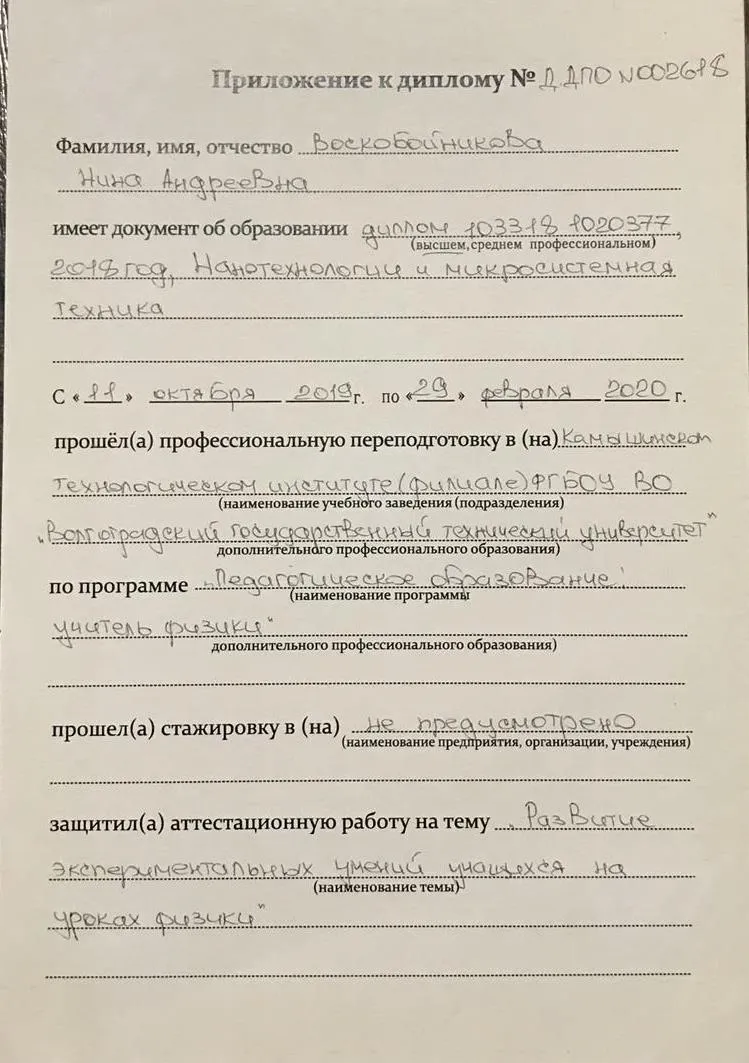 Приложение к диплому № ДДПО N002618
Фамилия, имя, отчество Воскобойникова
Нина Андреевна
имеет документ об образовании диплом 103318 1020377,
(высшем, среднем профессиональном)
2018 год, Нанотехнологии и микросистемная
техника
С «11» октября 2019 г. по «29» февраля 2020 г.
прошёл(а) профессиональную переподготовку в (на) Камышинском
технологическом институте (филиале) ФГБОУ ВО
(наименование учебного заведения (подразделения)
„Волгоградский государственный технический университет"
дополнительного профессионального образования)
по программе „Педагогическое образование:
(наименование программы
учитель физики"
дополнительного профессионального образования)
прошел(а) стажировку в (на) не предусмотрено
(наименование предприятия, организации, учреждения)
защитил(а) аттестационную работу на тему „Развитие
экспериментальных умений учащихся на
(наименование темы)
уроках физики"